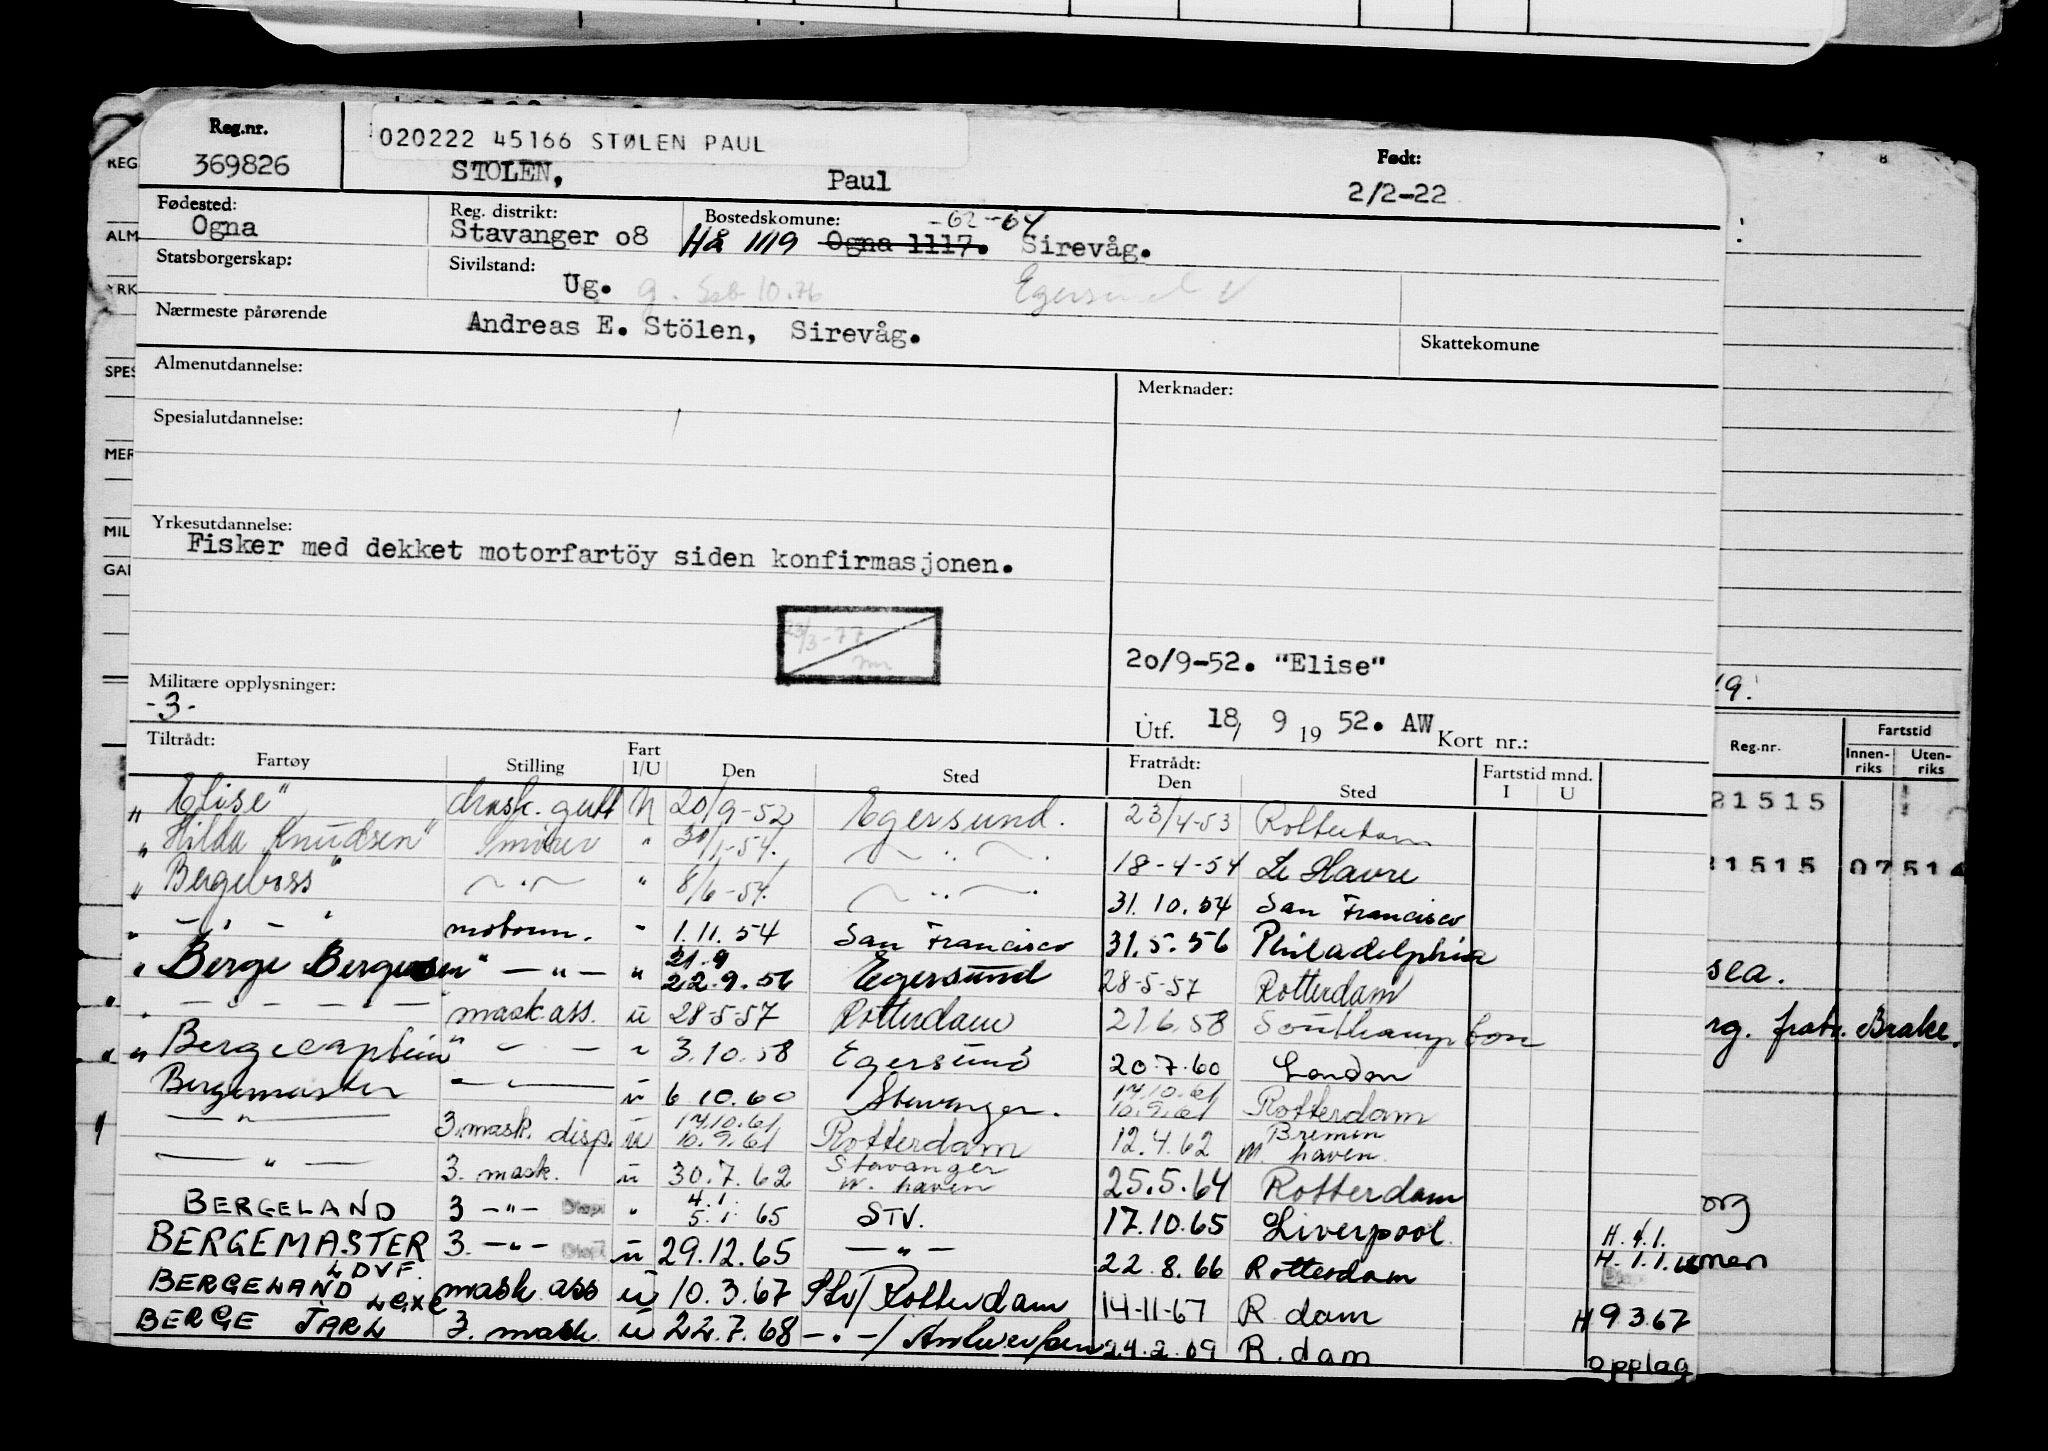 Reg.nr.
369826
020222 45166 STØLEN PAUL
STOLEN, Paul
Født:
2/2-22
Fødested:
Ogna
Reg. distrikt:
Stavanger o8
Bostedskomune: -62-64
Hå 1119 Ogna 1117. Sirevåg.
Statsborgerskap:
Sivilstand:
Ug. g. 10.76 Egersund
Nærmeste pårørende
Andreas E. Stölen, Sirevåg.
Skattekomune
Almenutdannelse:
Merknader:
Spesialutdannelse:
Yrkesutdannelse:
Fisker med dekket motorfartöy siden konfirmasjonen.
23/3-77
2o/9-52. "Elise"
Militære opplysninger:
-3-
Utf. 18/ 9 19 52. AW Kort nr.:
Tiltrådt:
Fartøy Stilling Fart I/U Den Sted Fratrådt: Den Sted Fartstid mnd. I U
" Elise" 20/9-52 Egersund. 23/4-53 Rotterdam
" Hilda Knudsen" Smører " 30/1-54. — " — 18-4-54 Le Havre
" Bergeboss" — " — " 8/6-54. — " — 31.10.54 San Francisco
" — " — " motorm. " 1.11.54 San Francisco 31.5.56 Philadelphia
21.9
" Berge Bergesen" — " — " 22.9.56 Egersund 28-5-57 Rotterdam
" — " — " — mask.ass. u 28-5-57 Rotterdam 21.6.58 Southampton
" Bergecaptain" — " — 3.10.58 Egersund 20.7.60 London
Bergemaster — " — u 6.10.60 Stavanger. 17.10.61 10.9.61 Rotterdam
— " — 3.mask. disp. u 17.10.61 10.9.61 Rotterdam 12.4.62 Bremen haven.
— " — 3. mask. u 30.7.62 Stavanger W. haven 25.5.64 Rotterdam
BERGELAND 3 — " — Disp " 4.1. 5.1.65 STV. 17.10.65 Liverpool H. 4.1.
BERGEMASTER 3. — " — Disp u 29.12.65 — " — 22.8.66 Rotterdam H. 1.1.
LDVF.
BERGELAND mask ass u 10.3.67 Stv/Rotterdam 14-11-67 R.dam H 9 3 67
BERGE JARL 3. mask u 22.7.68 — " —/Antwerpen 24.2.69 R.dam opplag
REG
ALM
YRK
SPES
MER
MIL
7 8
19.
Reg.nr.
Fartstid
Innen-riks
Uten-riks
21515
21515 07514
sea.
rg. fratr. Brake.
org
men